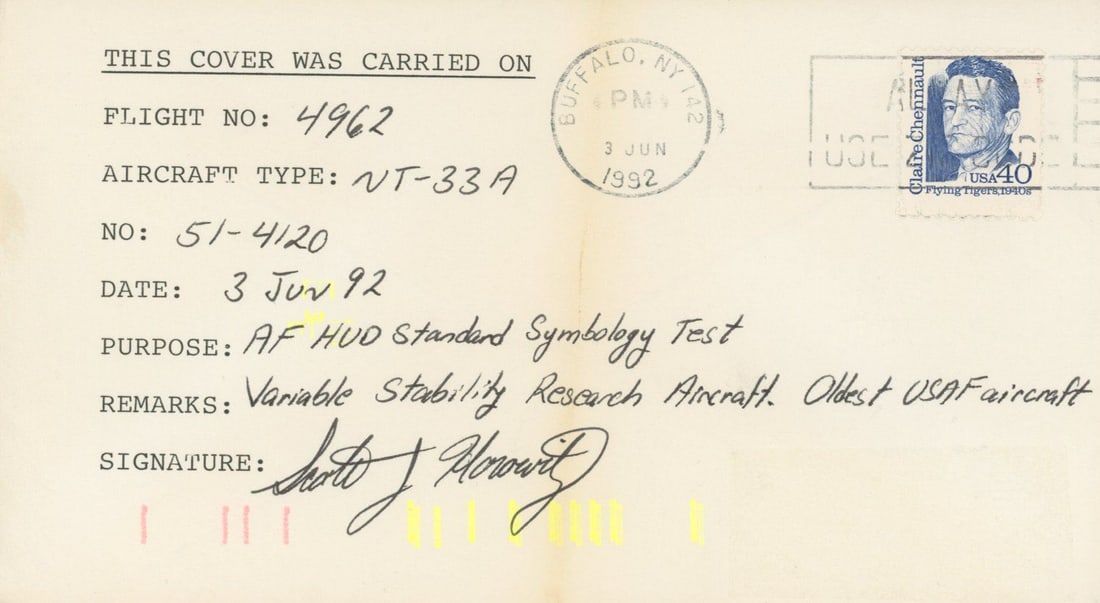 THIS COVER WAS CARRIED ON
FLIGHT NO: 4962
AIRCRAFT TYPE: NT-33A
NO: 51-4120
DATE: 3 Jun 92
PURPOSE: AF HUD Standard Symbology Test
REMARKS: Variable Stability Research Aircraft. Oldest USAF aircraft
SIGNATURE: Scott J Horowitz
BUFFALO, NY 142
PM
3 JUN
1992
USE
Claire Chennault
USA 40
Flying Tigers, 1940s